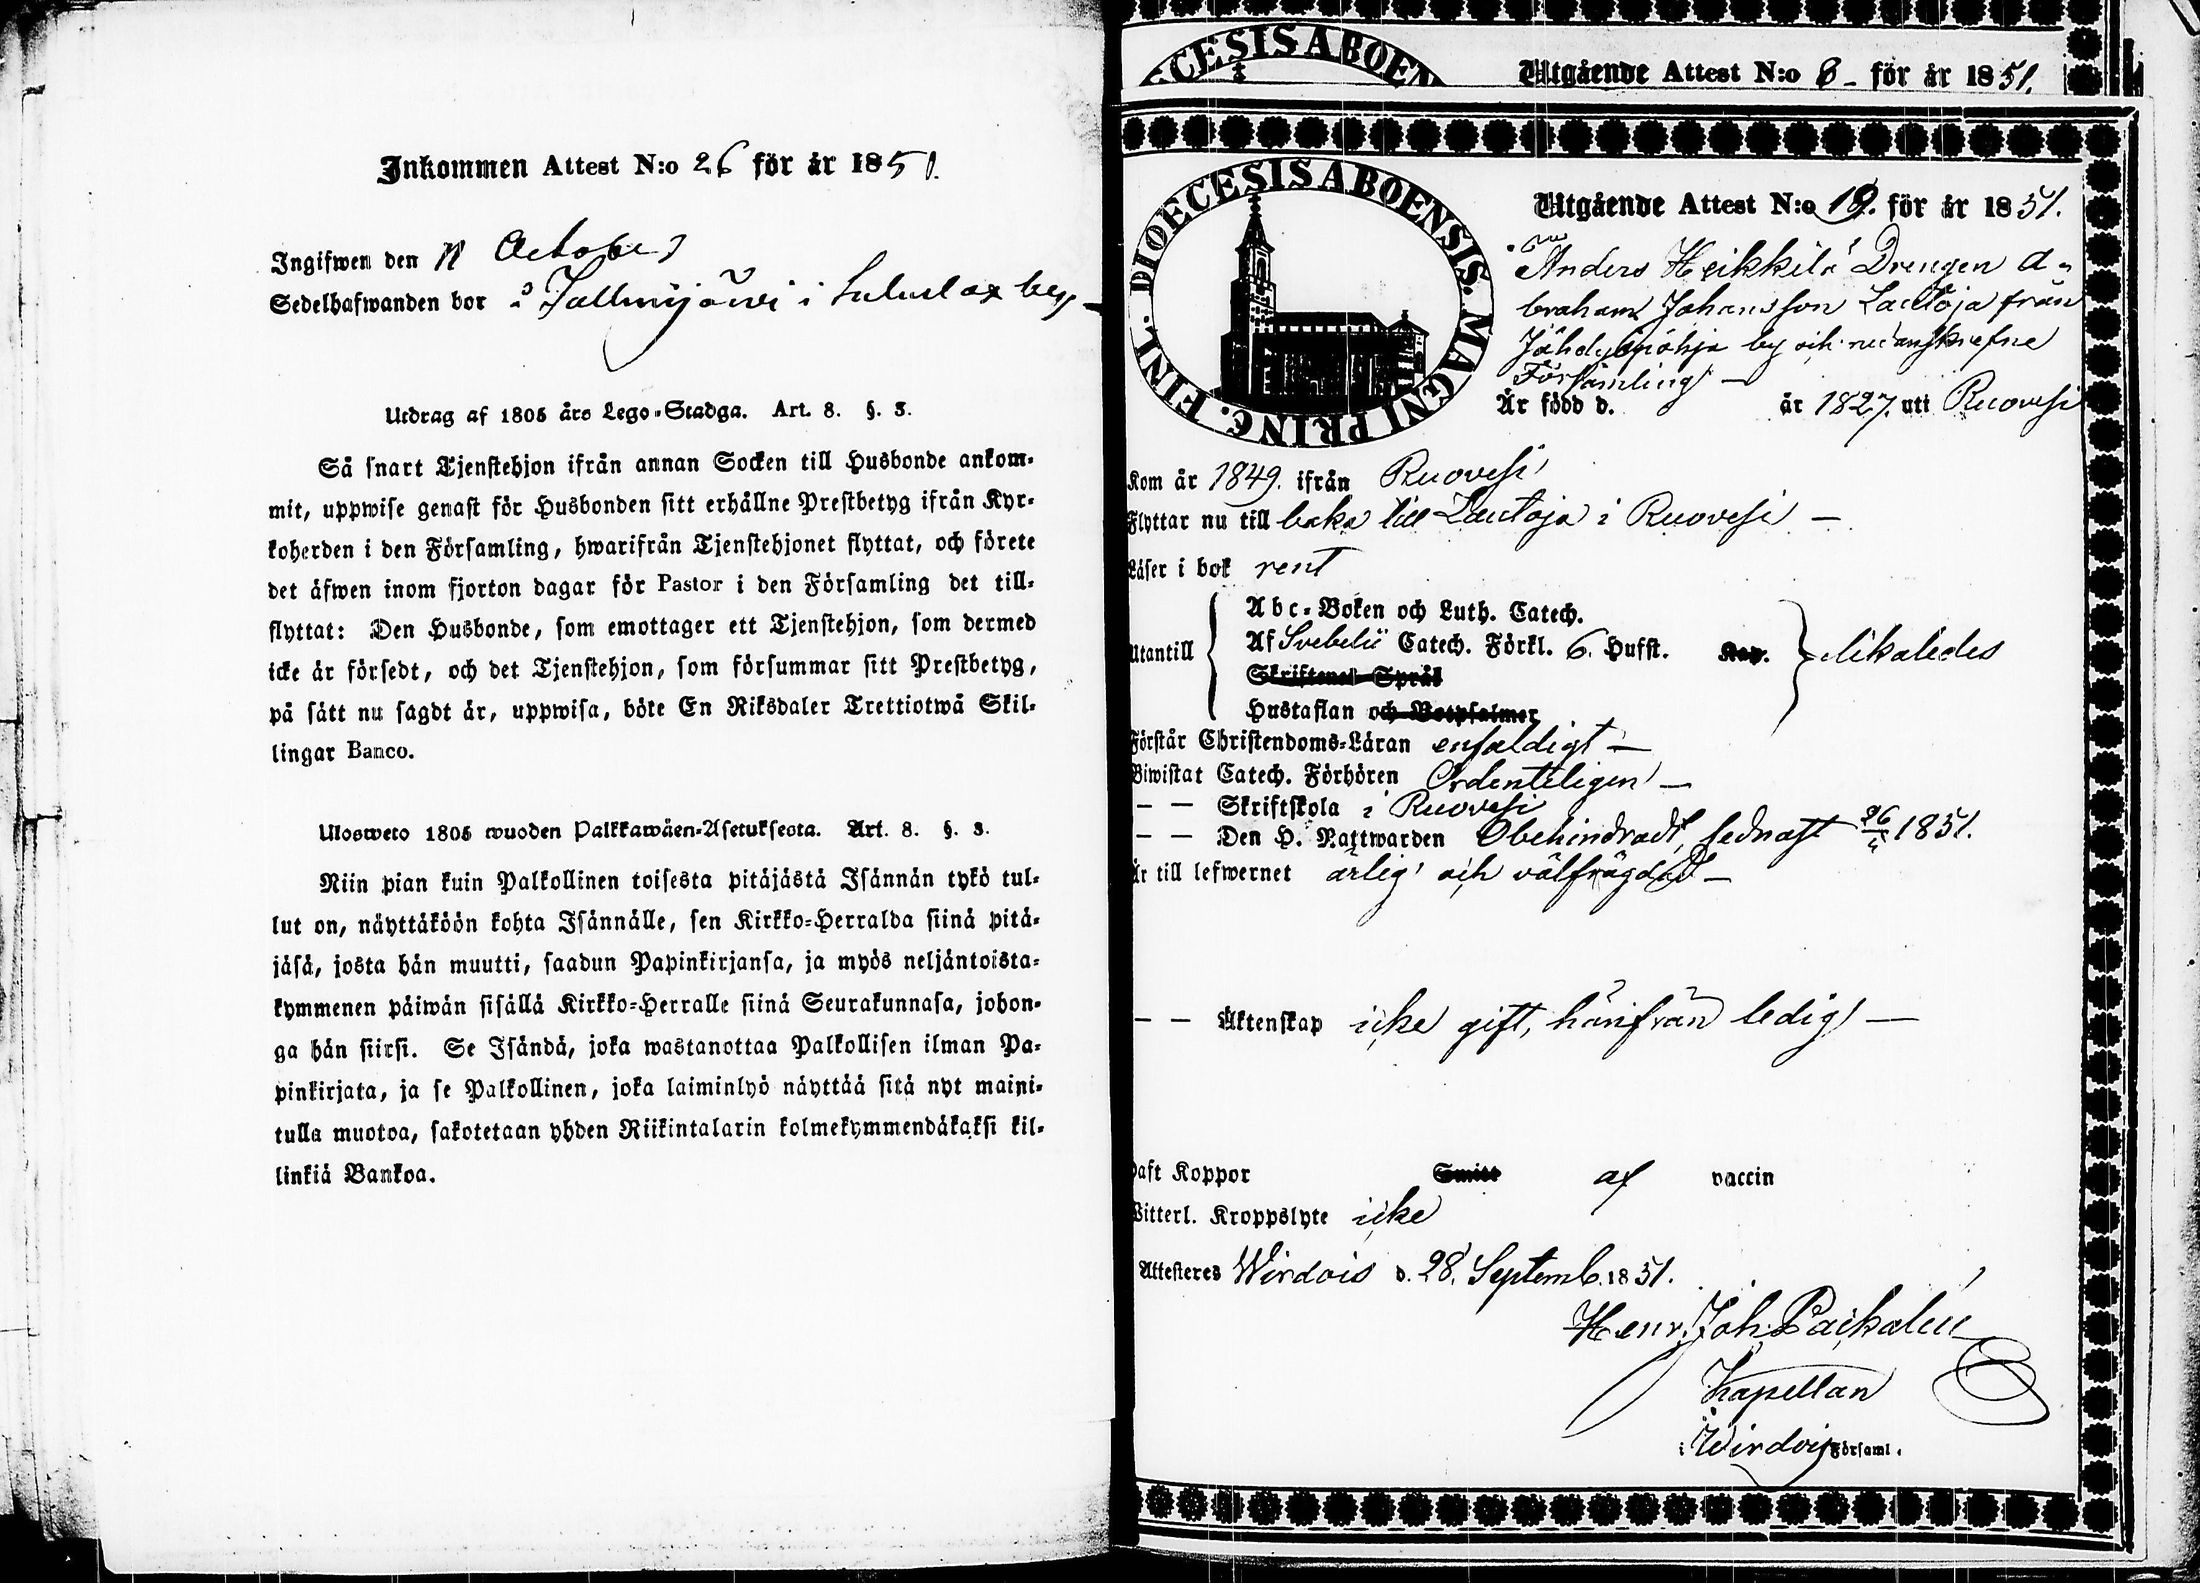 Inkommen Attest N:o 26 för år 1851.
Ingifwen den 11 October
Sedelhafwanden bor i
Utdrag af 1805 års Lego-Stadga. Art. 8. §. 3.
Så snart Tjenstehjon ifrån annan Socken till Husbonde ankom-
mit, uppwise genast för Husbonden sitt erhållne Prestbetyg ifrån Kyr-
koherden i den Församling, hwarifrån Tjenstehjonet flyttat, och förete
det äfwen inom fjorton dagar för Pastor i den Församling det till-
flyttat: Den Husbonde, som emottager ett Tjenstehjon, som dermed
icke är försedt, och det Tjenstehjon, som försummar sitt Prestbetyg,
på sätt nu sagdt är, uppwisa, böte En Riksdaler Trettiotwå Skil-
lingar Banco.
Ulosweto 1805 wuoden Palkkawäen-Asetuksesta. Art. 8. §. 3.
Niin pian kuin Palkollinen toisesta pitäjästä Isännän tykö tul-
lut on, näyttäköön kohta Isännälle, sen Kirkko-Herralda siinä pitä-
jäsä, josta hän muutti, saadun Papinkirjansa, ja myös neljäntoista-
kymmenen päiwän sisällä Kirkko-Herralle siinä Seurakunnasa, johon-
ga hän siirsi. Se Isändä, joka wastanottaa Palkollisen ilman Pa-
pinkirjata, ja se Palkollinen, joka laiminlyö näyttää sitä nyt maini-
tulla muotoa, sakotetaan yhden Riikintalarin kolmekymmendäkaksi kil-
linkiä Bankoa.
CESIS ABOEN
Utgående Attest N:o 8 för år 1851.
DIOECESIS ABOENSIS. MAGNI PRINC. FINL.
Utgående Attest N:o 19. för år 1851.
Anders Heikkilä Drengen A-
braham Johansson Lautoja från
by och
Församling
Är född d. år 1827. uti Ruovesi
Kom år 1849. ifrån Ruovesi
Flyttar nu till baka till Lautoja i Ruovesi
Läser i bok rent
Utantill
Abc-Boken och Luth. Catech.
Af Svebelii Catech. Förkl. 6. Hufst. Kap. likaledes
Skriftenes Språk
Hustaflan och Botpsalmer
Förstår Christendoms-Läran enfaldigt
Biwistat Catech. Förhören Ordenteligen
— — Skriftskola i Ruovesi
— — Den H. Nattwarden Obehindradt, sednast 1851.
Är till lefwernet ärlig och välfrägdad
— — Äktenskap icke gift, härifrån ledig
Haft Koppor Smitt af vaccin
Witterl. Kroppslyte icke
Attesteres Wirdois d. 28. Septemb. 1851.
Henr. Joh.
Kapellan
i Wirdois Församl.